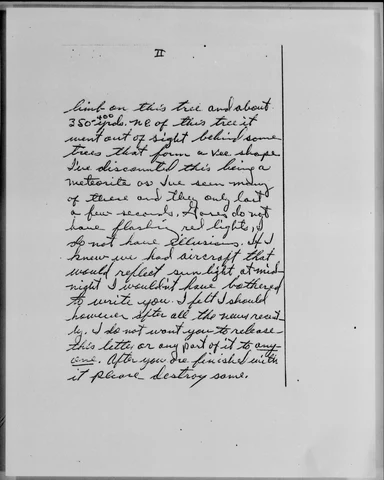 II
limb on this tree and about
350-400 yrds. NE of this tree it
went out of sight behind some
trees that form a vee shape
I've discounted this being a
meteorite as I've seen many
of these and they only last
a few seconds. do not
have flashing red lights, I
do not have illusions. If I
knew we had aircraft that
would reflect sun light at mid
night I wouldn't have bothered
to write you. I felt I should
however after all the news recent
ly. I do not want you to release
this letter or any part of it to any-
one. After you are finished with
it please destroy same.